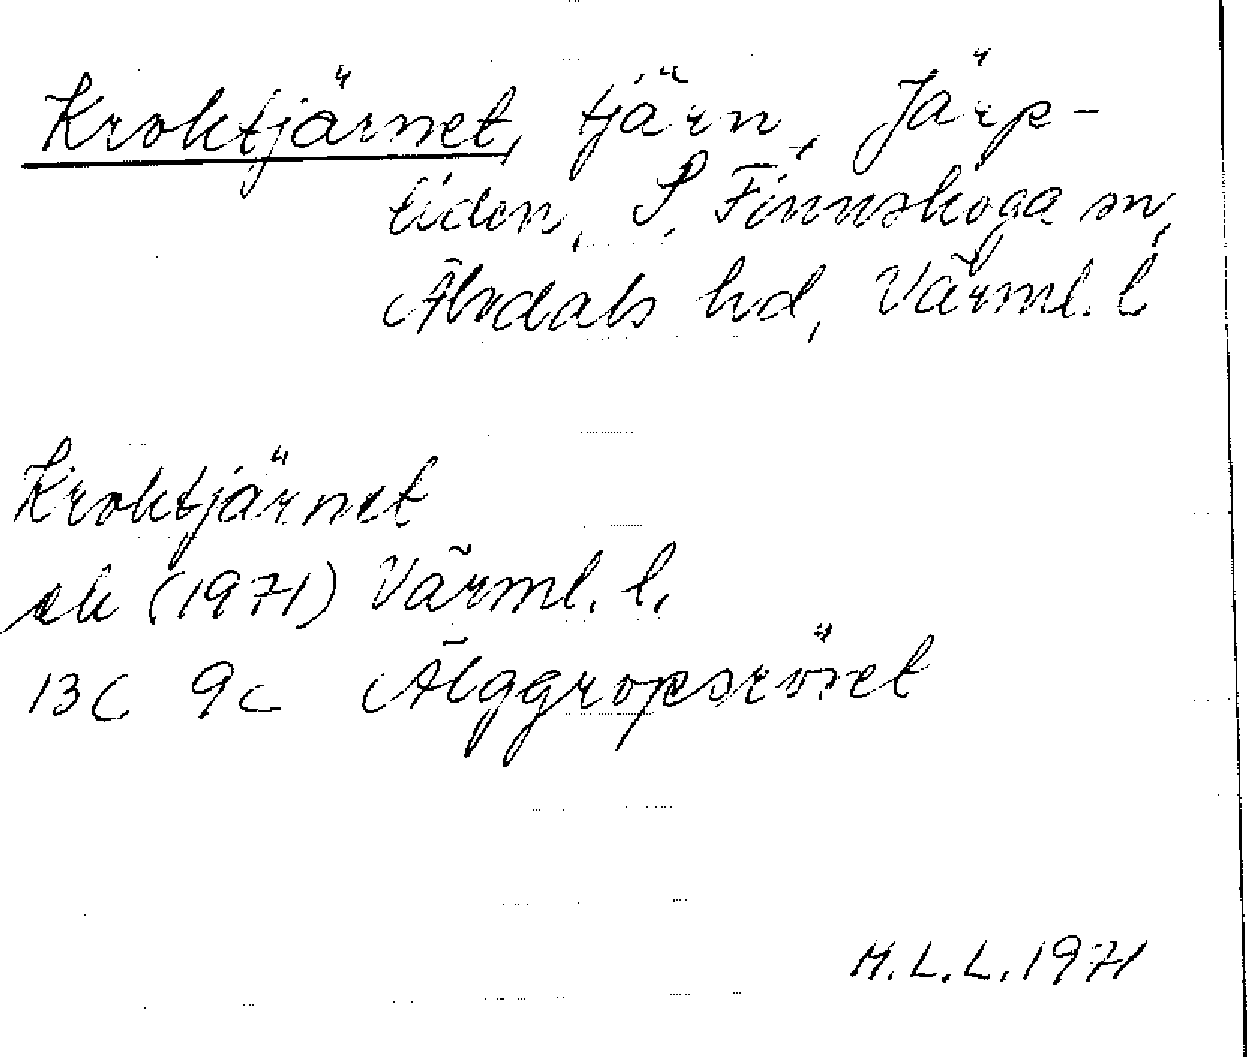 Kroktjärnet, tjärn, Järp-
liden, S. Finnskoga sn,
Älvdals hd, Värml. l
Kroktjärnet
ek (1971) Värml. l.
13C 9c Älggropsröset
M.L.L. 1971